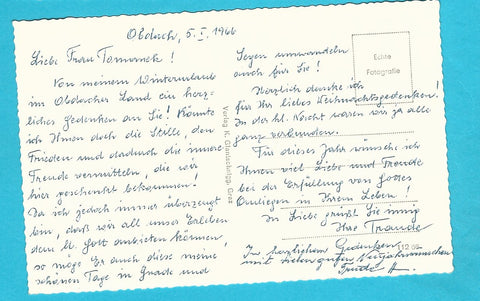 Obdach, 5.I.1966
Liebe Frau Tomanek!
Von meinem Winterurlaub
im Obdacher Land ein herz-
liches Gedenken an Sie! Könnte
ich Ihnen doch die Stille, den
Frieden und dadurch die innere
Freude vermitteln, die wir
hier geschenkt bekommen!
Da ich jedoch immer überzeugt
bin, daß wir all unser Erleben
dem lb. Gott anbieten können,
so möge Er auch diese meine
schönen Tage in Gnade und
Segen umwandeln
auch für Sie!
Herzlich danke ich
für Ihr liebes Weihnachtsgedenken!
In der hl. Nacht waren wir ja alle
ganz verbunden.
Für dieses Jahr wünsche ich
Ihnen viel Liebe und Freude
bei der Erfüllung von Gottes
Anliegen in Ihrem Leben!
In Liebe grüßt Sie innig
Ihre Traude
In herzlichem Gedenken
mit
Neujahrswünschen
Echte
Fotografie
Verlag K. Graz